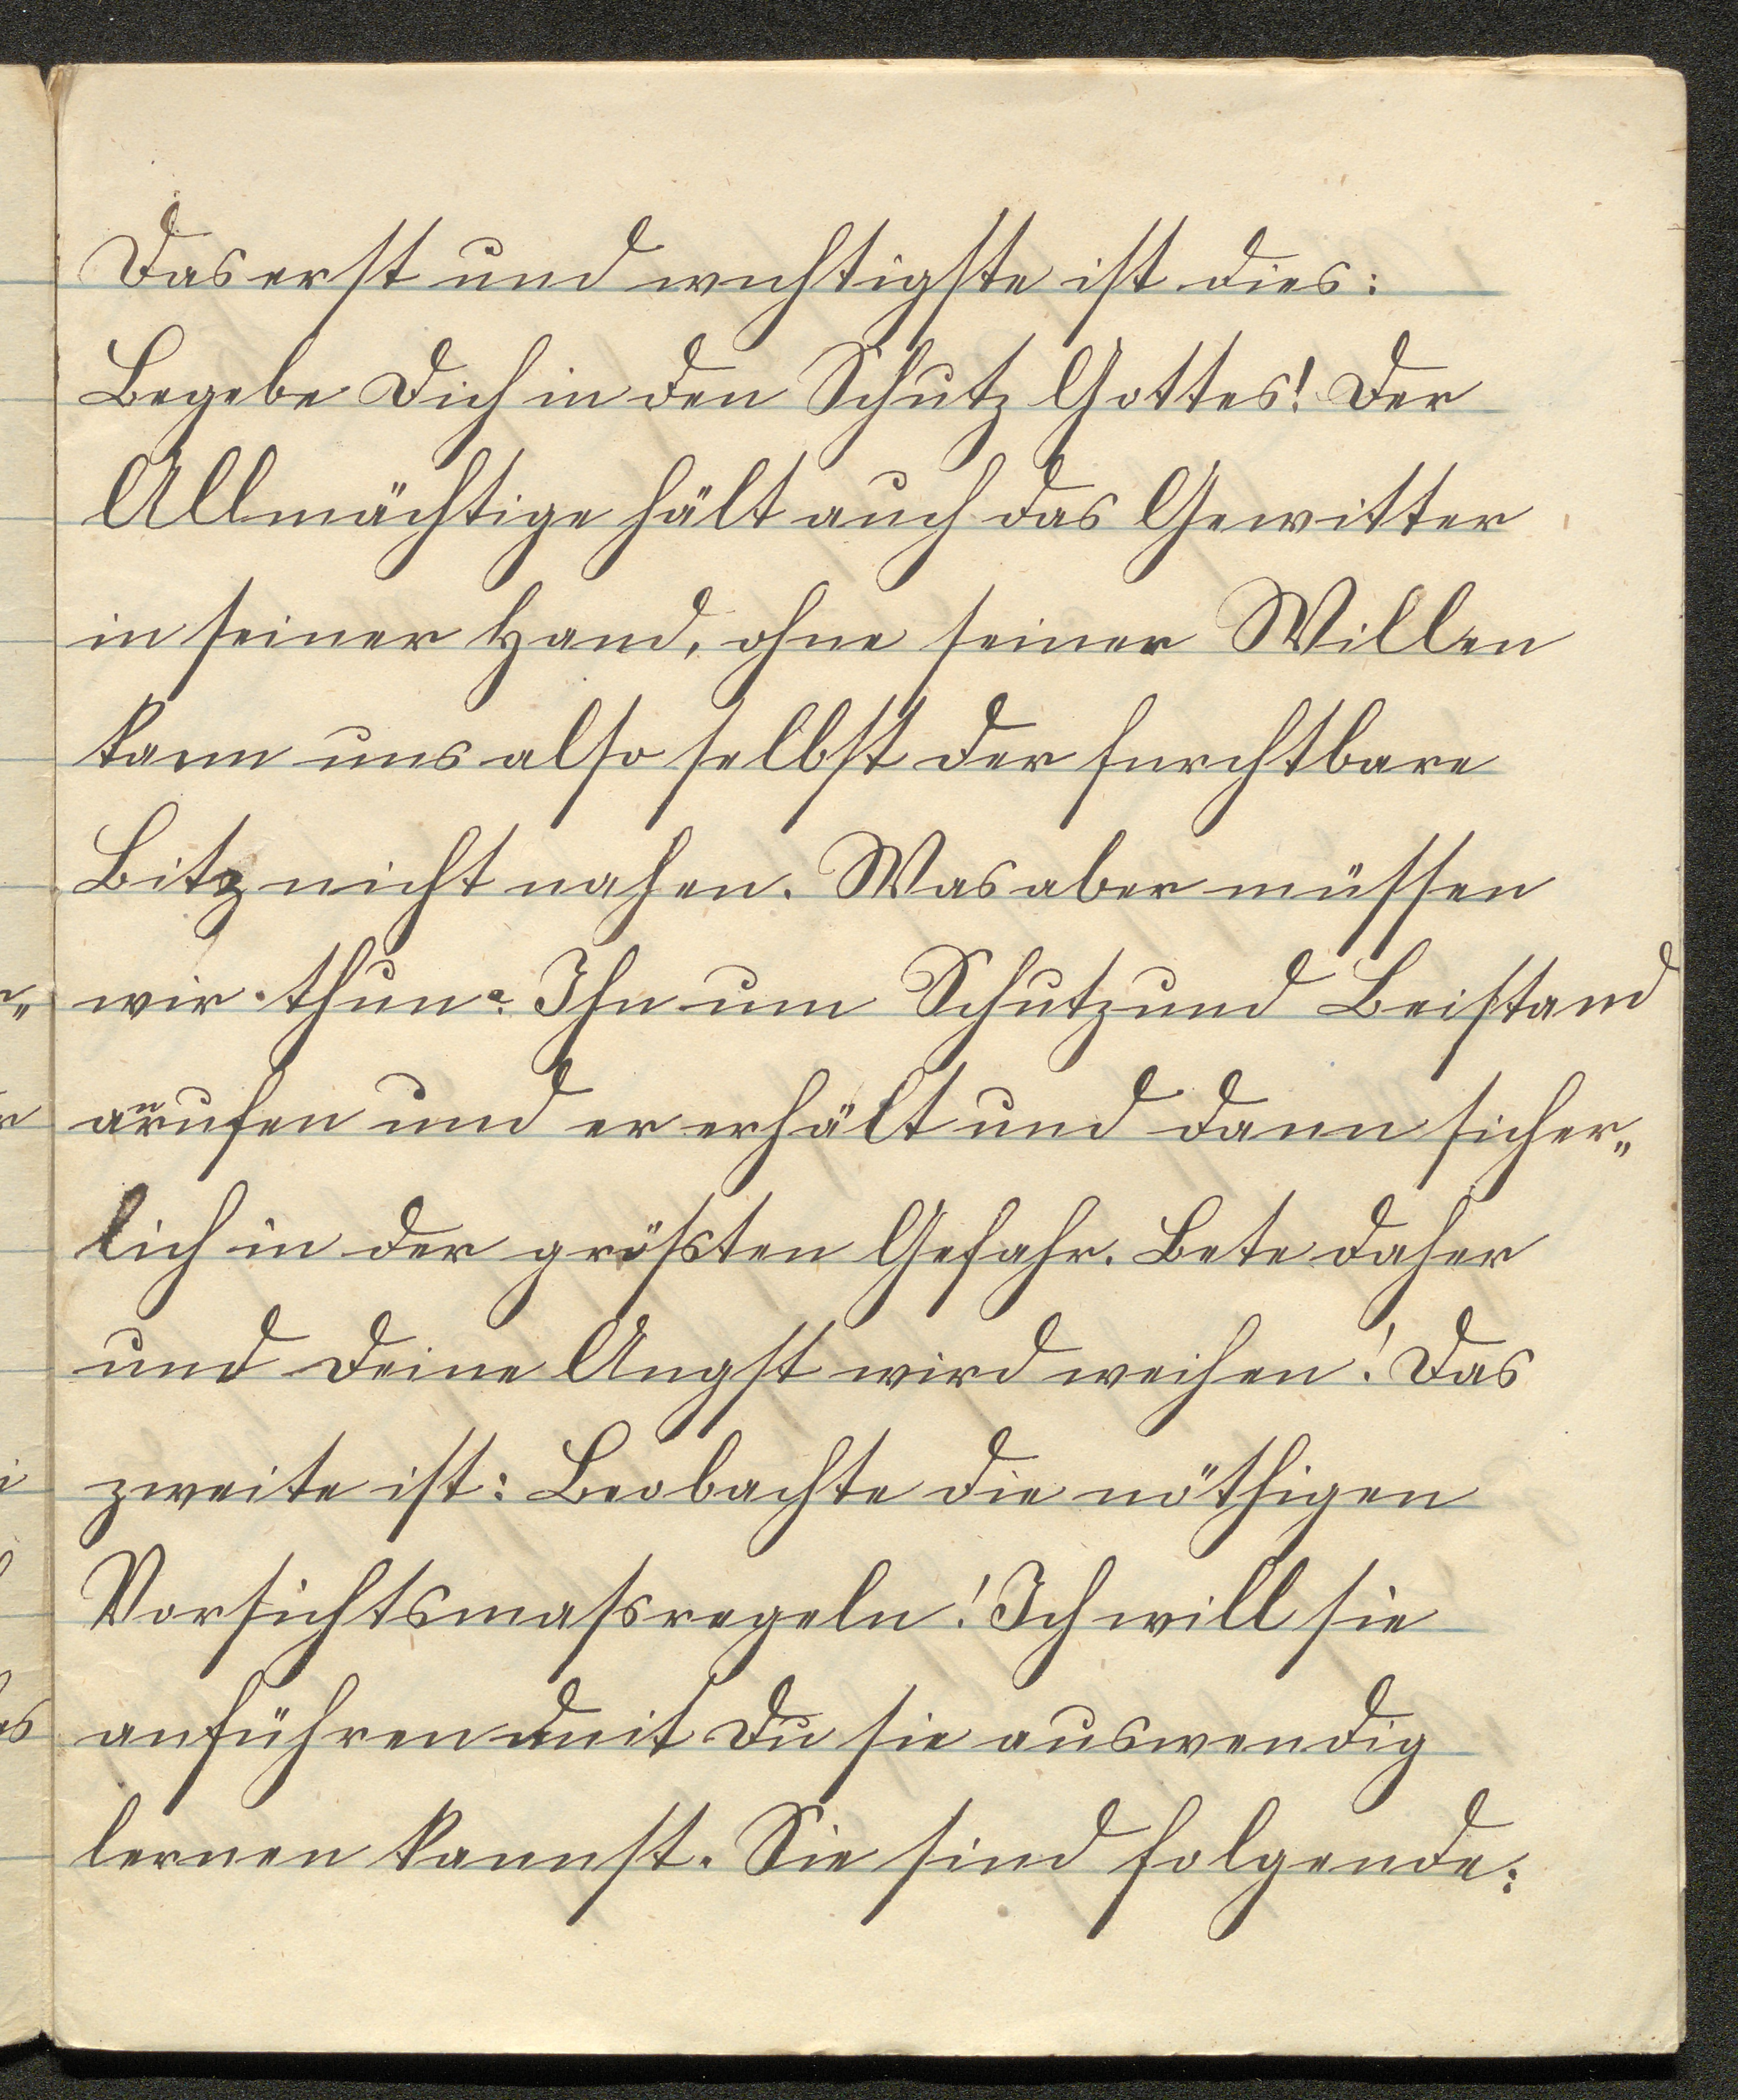 Das erst und wichtigste ist dies:
Begebe Dich in den Schutz Gottes! Der
Allmächtige hält auch das Gewitter
in seiner Hand, ohne seiner Willen
kann uns also selbst der furchtbare
Bitz nicht nahen. Was aber müssen
wir thun? Ihn um Schutz und Beistand
anrufen und er erhält und dann sicher„
lich in der größten Gefahr. Bete daher
und Deine Angst wird weihen! Das
zweite ist: Beobachte die nöthigen
Vorsichtsmaßregeln! Ich will sie
anführen dmit Du sie auswendig
lernen kannst. Sie sind folgende: